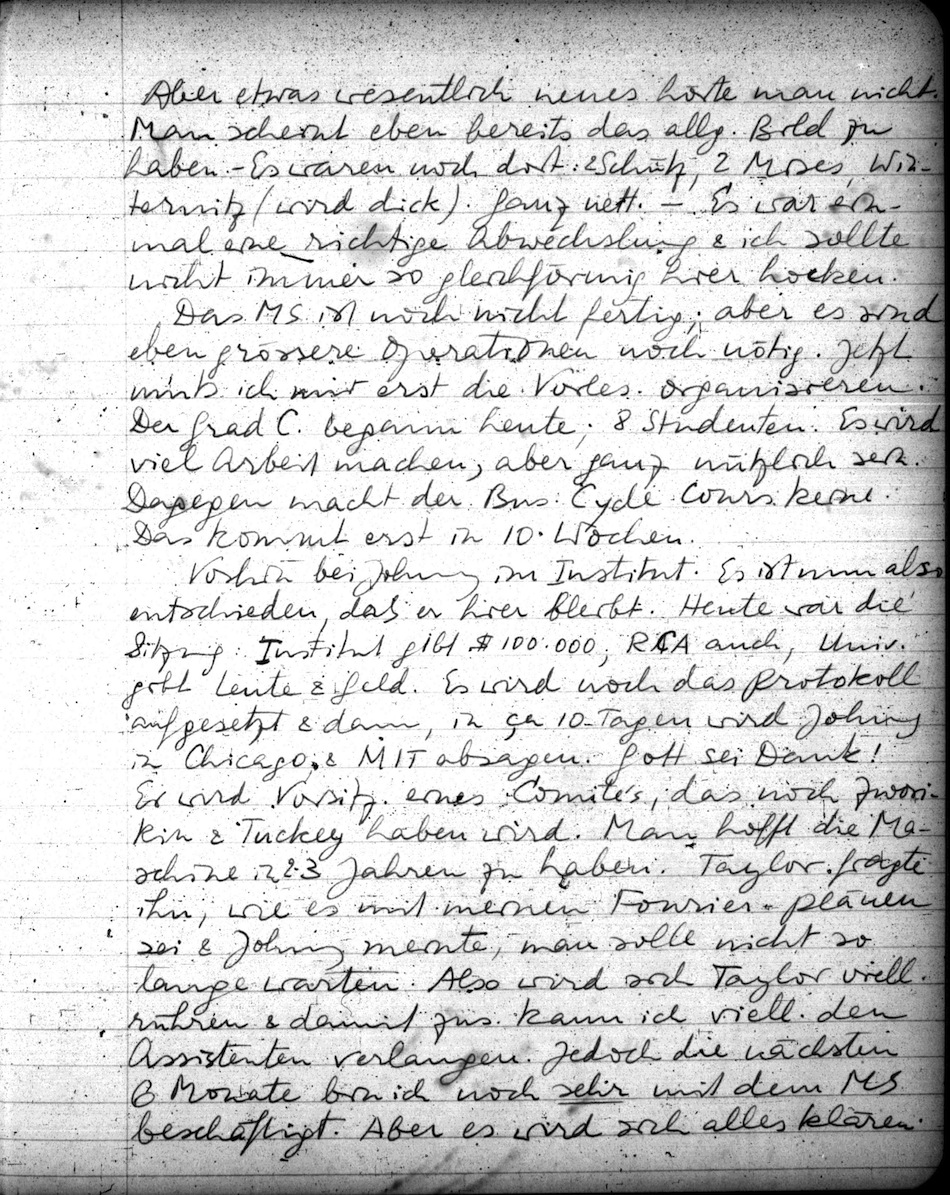 Aber etwas wesentlich neues hörte man nicht.
Man scheint eben bereits das allg. Bild zu
haben. - Es waren noch dort: 2 Schütz, 2 Moses, Win-
ternitz (wird dick). Ganz nett. — Es war ein-
mal eine richtige Abwechslung & ich sollte
nicht immer so gleichförmig hier hocken.
Das MS ist noch nicht fertig; aber es sind
eben grössere Operationen noch nötig. Jetzt
muß ich mir erst die Vorles. organisieren.
Der Grad C. begann heute; 8 Studenten. Es wird
viel Arbeit machen, aber ganz nützlich sein.
Dagegen macht der Bus. Cycle Cours keine.
Das kommt erst in 10 Wochen.
Vorhin bei Johnny im Institut. Es ist nun also
entschieden, daß er hier bleibt. Heute war die
Sitzung. Institut gibt $ 100.000, RCA auch, Univ.
gibt Leute & Geld. Es wird noch das Protokoll
aufgesetzt & dann, in ca 10 Tagen wird Johnny
in Chicago & MIT absagen. Gott sei Dank!
Er wird Vorsitz. eines Comités, das noch Zwori-
kin & Tuckey haben wird. Man hofft die Ma-
schine in 2-3 Jahren zu haben. Taylor fragte
ihn, wie es mit meinen Fourier-plänen
sei & Johnny meinte, man solle nicht so
lange warten. Also wird sich Taylor viell.
rühren & damit zus. kann ich viell. den
Assistenten verlangen. Jedoch die nächsten
6 Monate bin ich noch sehr mit dem MS
beschäftigt. Aber es wird sich alles klären.